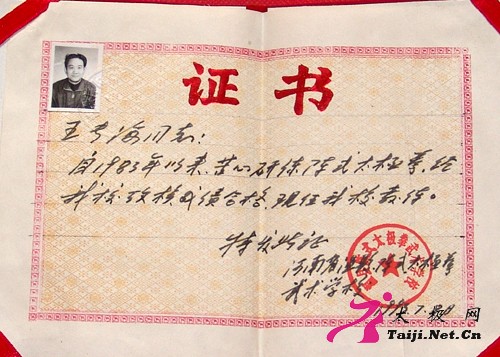 证书
王专海同志:
自1983年以来,苦心研练陈式太极拳,经
我校考核成绩合格,现任我校
特发此证
河南省 陈式太极拳
武术学校
式太极拳武术学校
太极网
Taiji.Net.Cn